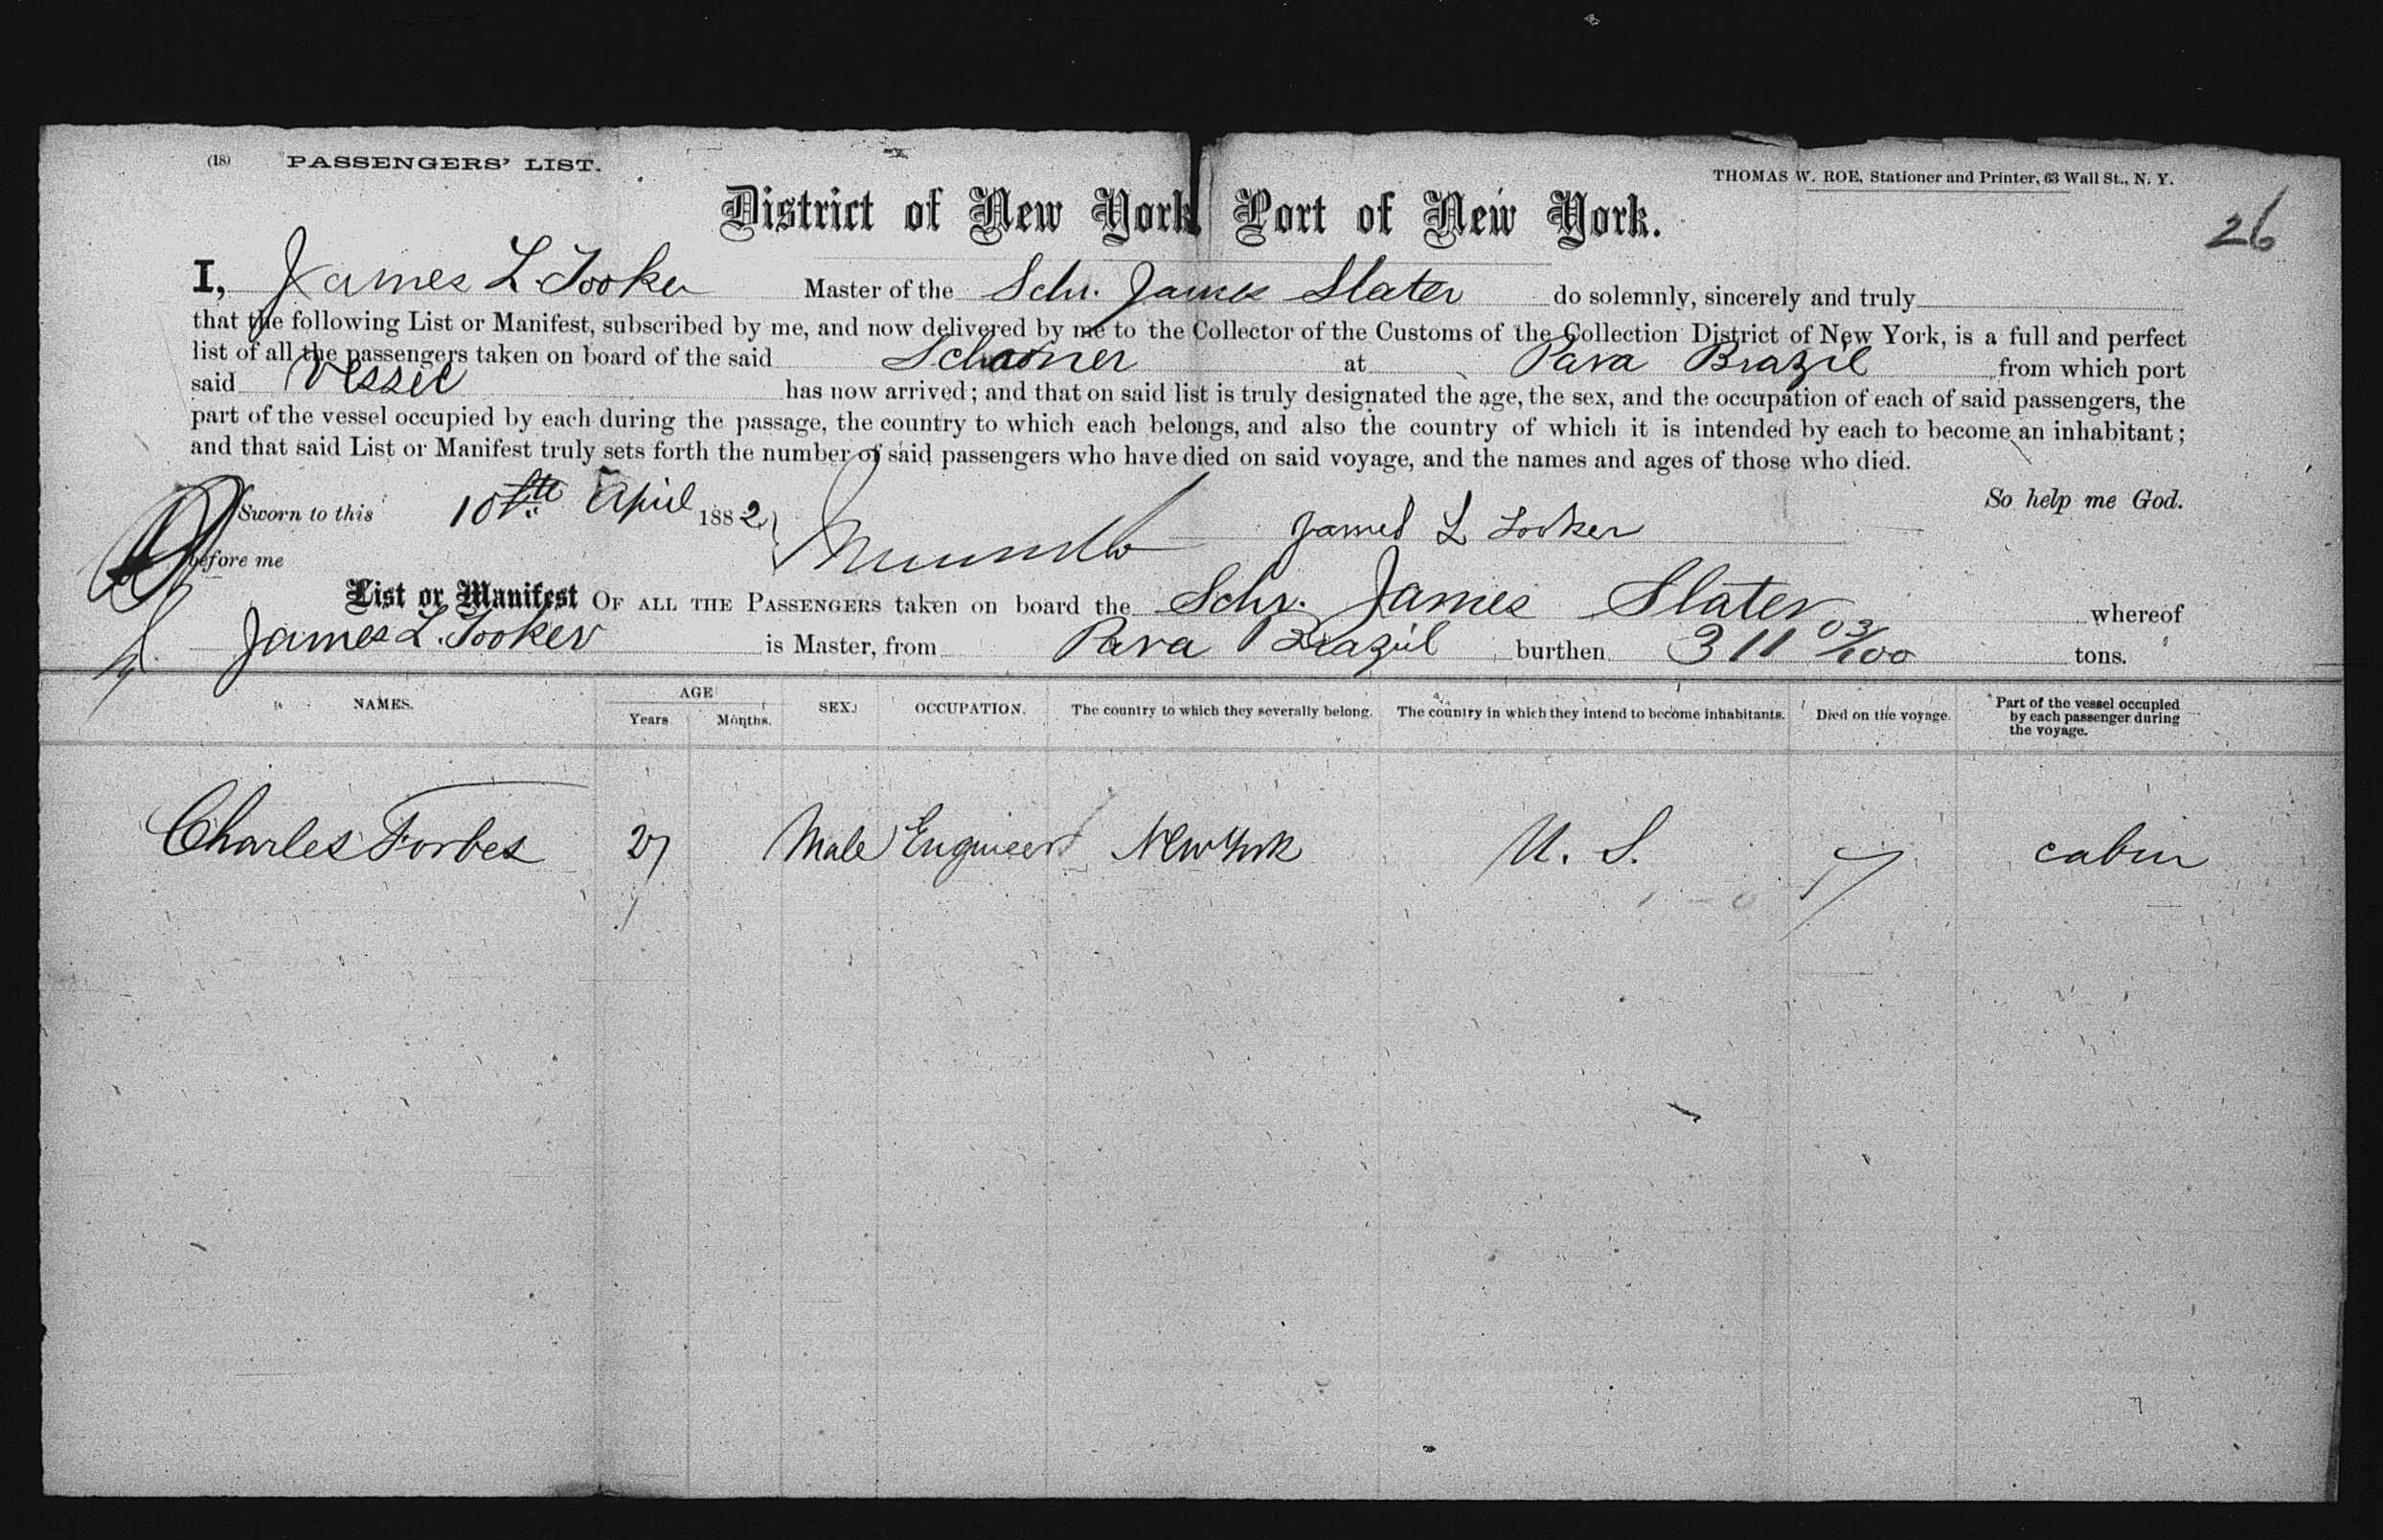 (18) PASSENGERS' LIST.
THOMAS W. ROE, Stationer and Printer, 63 Wall St., N. Y.
District of New York Port of New York.
26
I, James L. Tooker Master of the Schr. James Slater do solemnly, sincerely and truly
that the following List or Manifest, subscribed by me, and now delivered by me to the Collector of the Customs of the Collection District of New York, is a full and perfect
list of all the passengers taken on board of the said Schooner at Para Brazil from which port
said Vessel has now arrived; and that on said list is truly designated the age, the sex, and the occupation of each of said passengers, the
part of the vessel occupied by each during the passage, the country to which each belongs, and also the country of which it is intended by each to become an inhabitant;
and that said List or Manifest truly sets forth the number of said passengers who have died on said voyage, and the names and ages of those who died.
So help me God.
Sworn to this 10th April 1882
James L Tooker
before me
List or Manifest OF ALL THE PASSENGERS taken on board the Schr. James Slater whereof
James L. Tooker is Master, from Para Brazil burthen 311 03/100 tons.
NAMES. AGE Years Months. SEX. OCCUPATION. The country to which they severally belong. The country in which they intend to become inhabitants. Died on the voyage. Part of the vessel occupied by each passenger during the voyage.
Charles Forbes 27 Male Engineer New York U. S. cabin